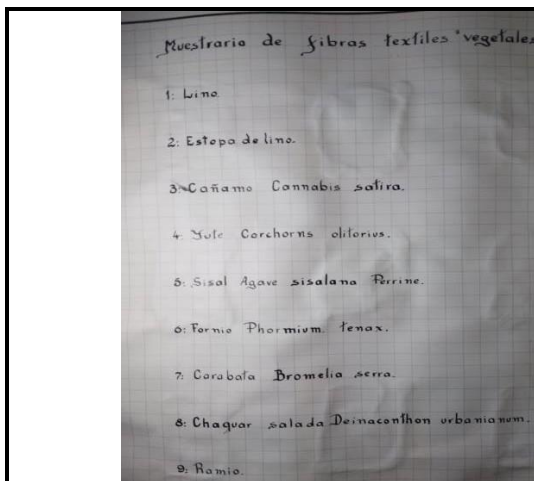 Muestrario de fibras textiles "vegetales
1: Lino.
2: Estopa de lino.
3: Cañamo Cannabis satira.
4. Yute Corchorns olitorius.
5: Sisal Agave sisalana Perrine.
6: Formio Phormium. tenax.
7: Carabata Bromelia serra.
8: Chaguar salada Deinaconthon urbanianum.
9: Ramio.